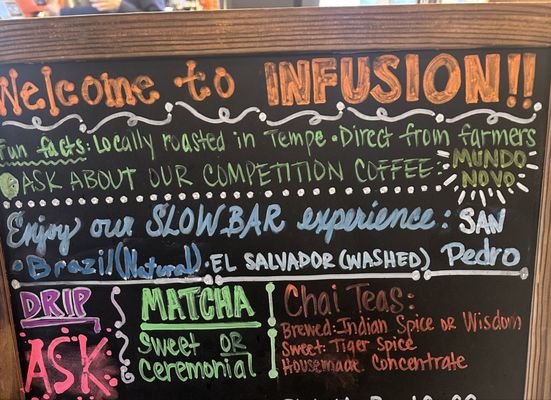 Welcome to INFUSION!!
Fun facts: Locally roasted in Tempe • Direct from farmers
ASK ABOUT OUR COMPETITION COFFEE: MUNDO NOVO
Enjoy our SLOWBAR experience: SAN
• Brazil (Natural) • EL SALVADOR (WASHED) Pedro
DRIP
ASK
MATCHA
Sweet OR
Ceremonial
Chai Teas:
Brewed: Indian Spice OR Wisdom
Sweet: Tiger Spice
Housemade Concentrate